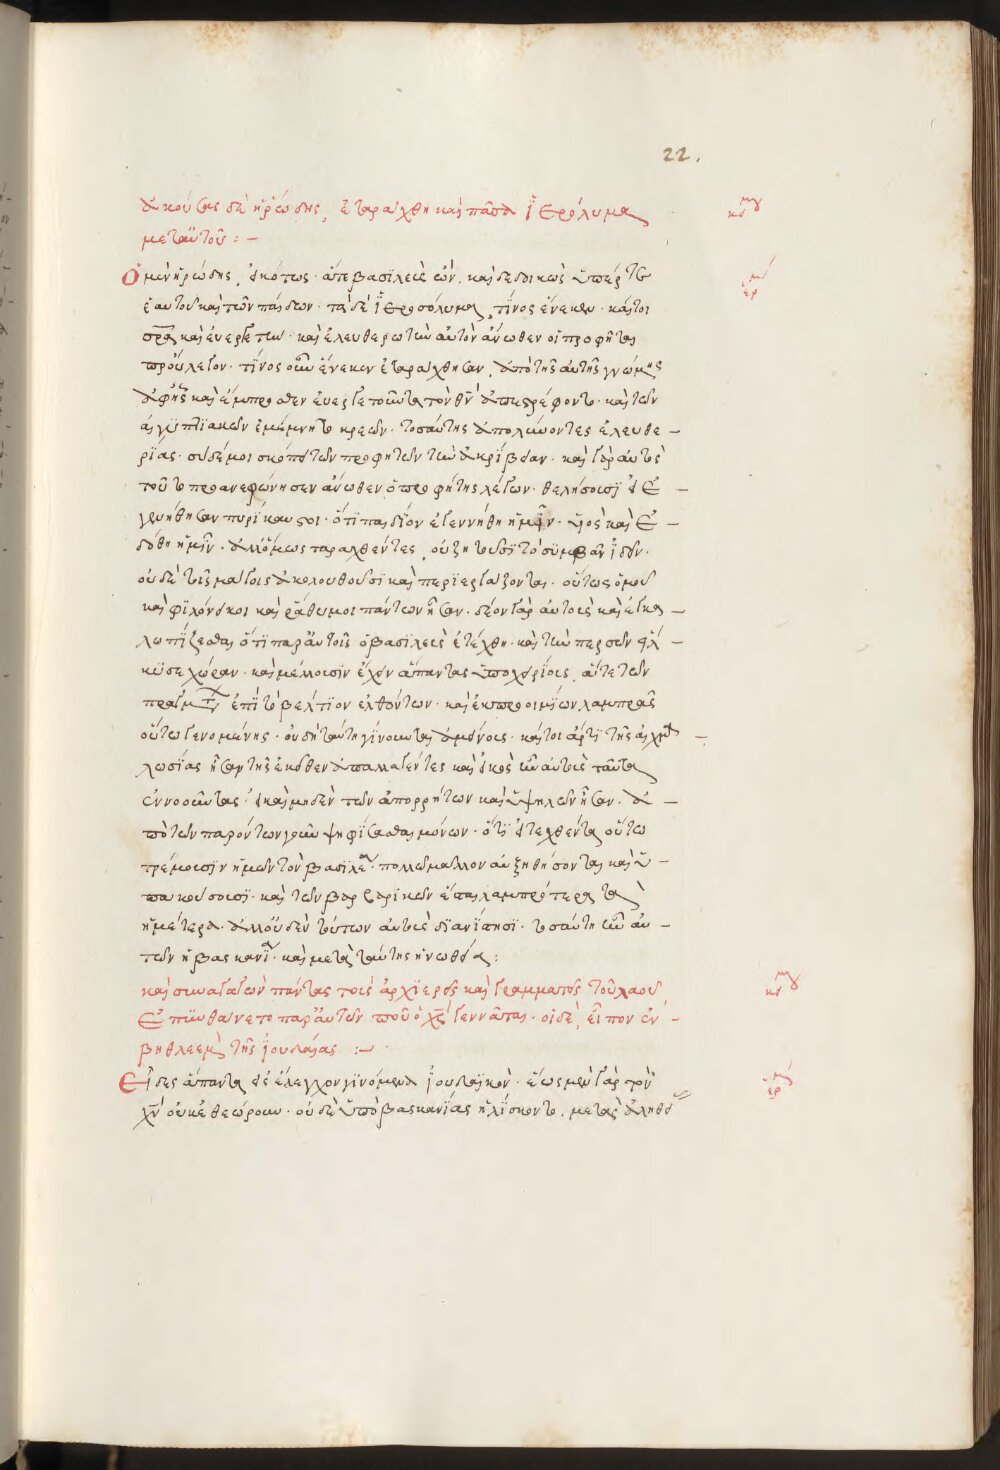 22.
ἀκούσας δὲ ἡρώδης, ἐταράχθη καὶ πᾶσα ἱερόλυμα
μετ' αὐτοῦ : –
κυ
Ὁ μὲν ἡρώδης, εἰκότως· ἅτε βασιλεὺς ὢν. καὶ δεδοικὼς ὑπέρ τε
ἑαυτοῦ καὶ τῶν παίδων· τὰ δὲ ἱεροσόλυμα, τίνος ἕνεκεν· καίτοι
σρα καὶ εὐεργέτην· καὶ ἐλευθερωτὴν αὐτὸν ἄνωθεν οἱ προφῆται
προὔλεγον· τίνος οὖν ἕνεκεν ἐταράχθησαν, ἀπὸ τῆς αὐτῆς γνώμης
ἀφ' ἧς καὶ ἔμπροσθεν εὐεργετοῦντα τὸν θν ἀπεστρέφοντο· καὶ τῶν
αἰγυπτιακῶν ἐμέμνηντο κρεῶν· τοσαύτης ἀπολαύοντες ἐλευθε –
ρίας· σὺ δέ μοι σκόπει τῶν προφητῶν τὴν ἀκρίβειαν· καὶ γὰρ αὐτὸ
τοῦτο προανεφώνησεν ἄνωθεν ὁ προφήτης λέγων· θελήσουσι εἰ ἐ –
γενήθησαν πυρίκαυστοι· ὅτι παιδίον ἐγεννήθη ἡμῖν· υἱὸς καὶ ἐ –
δόθη ἡμῖν· ἀλλ' ὅμως ταραχθέντες, οὐ ζητοῦσι τὸ συμβὰν ἰδεῖν·
οὐδὲ τοῖς μάγοις ἀκολουθοῦσι καὶ περιεργάζονται· οὕτως ὁμοῦ
καὶ φιλόνεικοι καὶ ῥάθυμοι πάντων ἦσαν· δέον γὰρ αὐτοὺς καὶ ἐγκα –
λωπίζεσθαι ὅτι παρ' αὐτοῖς ὁ βασιλεὺς ἐτέχθη· καὶ τὴν περσῶν εἵλ –
κυσε χώραν· καὶ μέλλουσιν ἔχειν ἅπαντας ὑποχειρίους, ἅτε τῶν
πραγμ ἐπὶ τὸ βέλτιον ἐλθόντων· καὶ ἐκ προοιμίων λαμπρᾶς
οὕτω γενομένης· οὐδὲ ταύτῃ γίνονται ἀμείνους· καίτοι ἄρτι τῆς αἰχμα –
λωσίας ἦσαν τῆς ἐκεῖθεν ἀπαλλαγέντες καὶ εἰκὸς ἦν αὐτοὺς ταῦτα
ἐννοοῦντας· εἰ καὶ μηδὲν τῶν ἀπορρήτων καὶ ὑψηλῶν ἦσαν· ἀ –
πὸ τῶν παρόντων γοῦν ψηφίσασθαι μόνων· ὅτι εἰ τεχθέντα οὕτω
τρέμουσιν ἡμῶν τὸν βασιλέα· πολλῶ μᾶλλον αὐξηθήσονται καὶ ὑ –
πακούσουσι· καὶ τῶν βαρβαρικῶν ἔσται λαμπρότερα τὰ
ἡμέτερα· ἀλλ' οὐδὲν τούτων αὐτοὺς διανίστησι· τοσαύτη ἦν αὐ –
τῶν ἡ βασκανία· καὶ μετὰ ταύτης ἡ νωθεία:
καὶ συναγαγὼν πάντας τοὺς ἀρχιερεῖς καὶ γραμματεῖς τοῦ λαοῦ
ἐπυνθάνετο παρ' αὐτῶν ποῦ ὁ χς γεννᾶται· οἱ δὲ, εἶπον ἐν –
βηθλεὲμ τῆς ἰουδαίας :–
Εἶδες ἅπαντα εἰς ἔλεγχον γινόμενα ἰουδαϊκὸν· ἕως μὲν γὰρ τὸν
χν οὐκ ἐθεώρουν· οὐδὲ ὑπὸ βασκανίας ἡλίσκοντο· μετὰ ἀληθείας